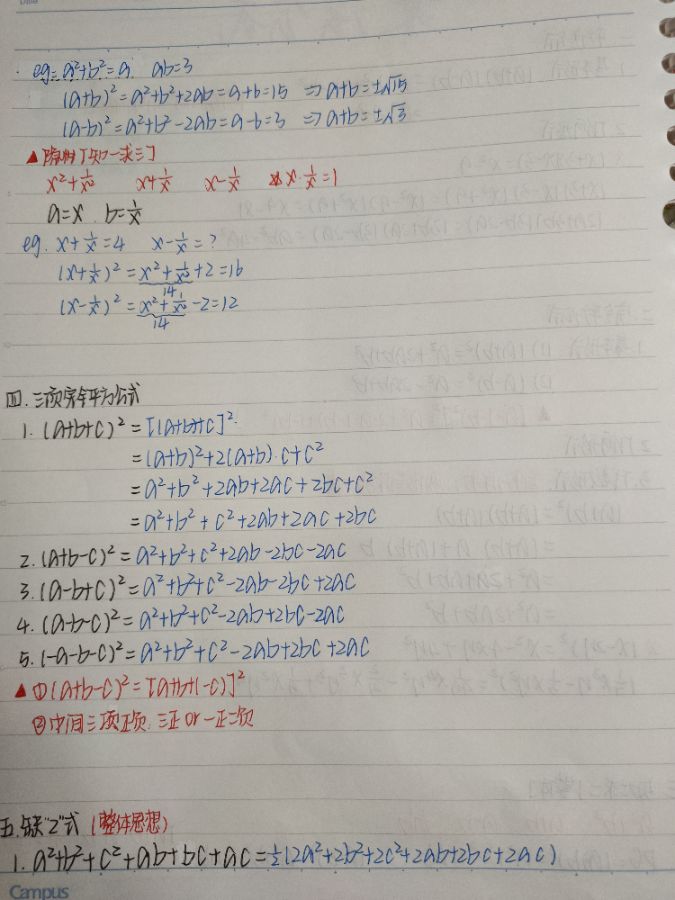 eg. a²+b²=9. ab=3
(a+b)²=a²+b²+2ab=9+b=15 ⇒a+b=±√15
(a-b)²=a²+b²-2ab=9-b=3 ⇒a+b=±√3
▲ 知一求三
x²+1/x² x+1/x x-1/x x·1/x=1
a=x. b=1/x
eg. x+1/x=4 x-1/x=?
(x+1/x)²=x²+1/x²+2=16
14
(x-1/x)²=x²+1/x²-2=12
14
四. 三项完全平方公式
1. (a+b+c)²=[(a+b)+c]²
=(a+b)²+2(a+b)·c+c²
=a²+b²+2ab+2ac+2bc+c²
=a²+b²+c²+2ab+2ac+2bc
2. (a+b-c)²=a²+b²+c²+2ab-2bc-2ac
3. (a-b+c)²=a²+b²+c²-2ab-2bc+2ac
4. (a-b-c)²=a²+b²+c²-2ab+2bc-2ac
5. (-a-b-c)²=a²+b²+c²-2ab+2bc+2ac
▲ ①(a+b-c)²=[a+b+(-c)]²
②中间三项正负: 三正or一正二负
五. 缺"2"式 (整体思想)
1. a²+b²+c²+ab+bc+ac=½(2a²+2b²+2c²+2ab+2bc+2ac)
Campus